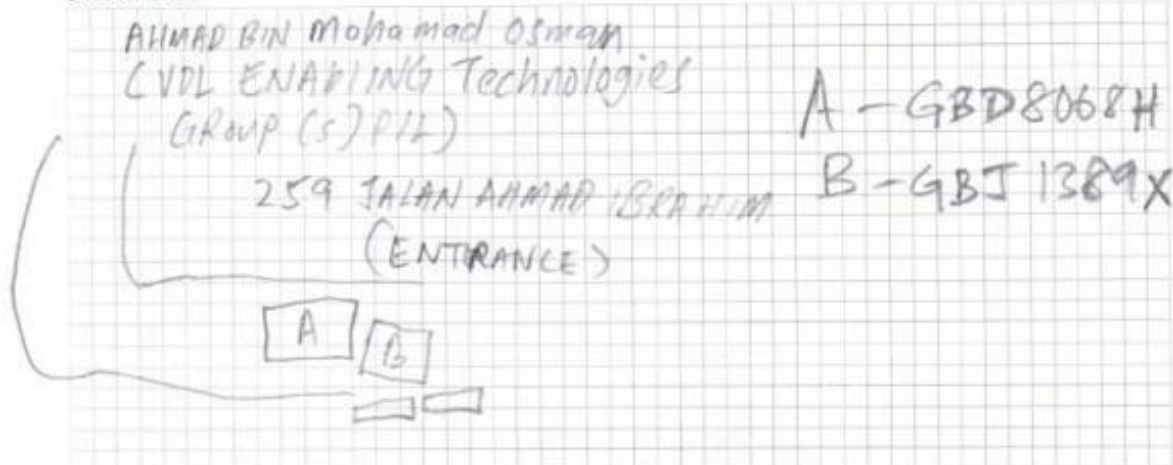 AHMAD BIN Mohamad Osman
(VDL ENABLING Technologies
GROUP (S) P/L)
259 JALAN AHMAD IBRAHIM
(ENTRANCE)
A - GBD8068H
B - GBJ 1389X
A
B